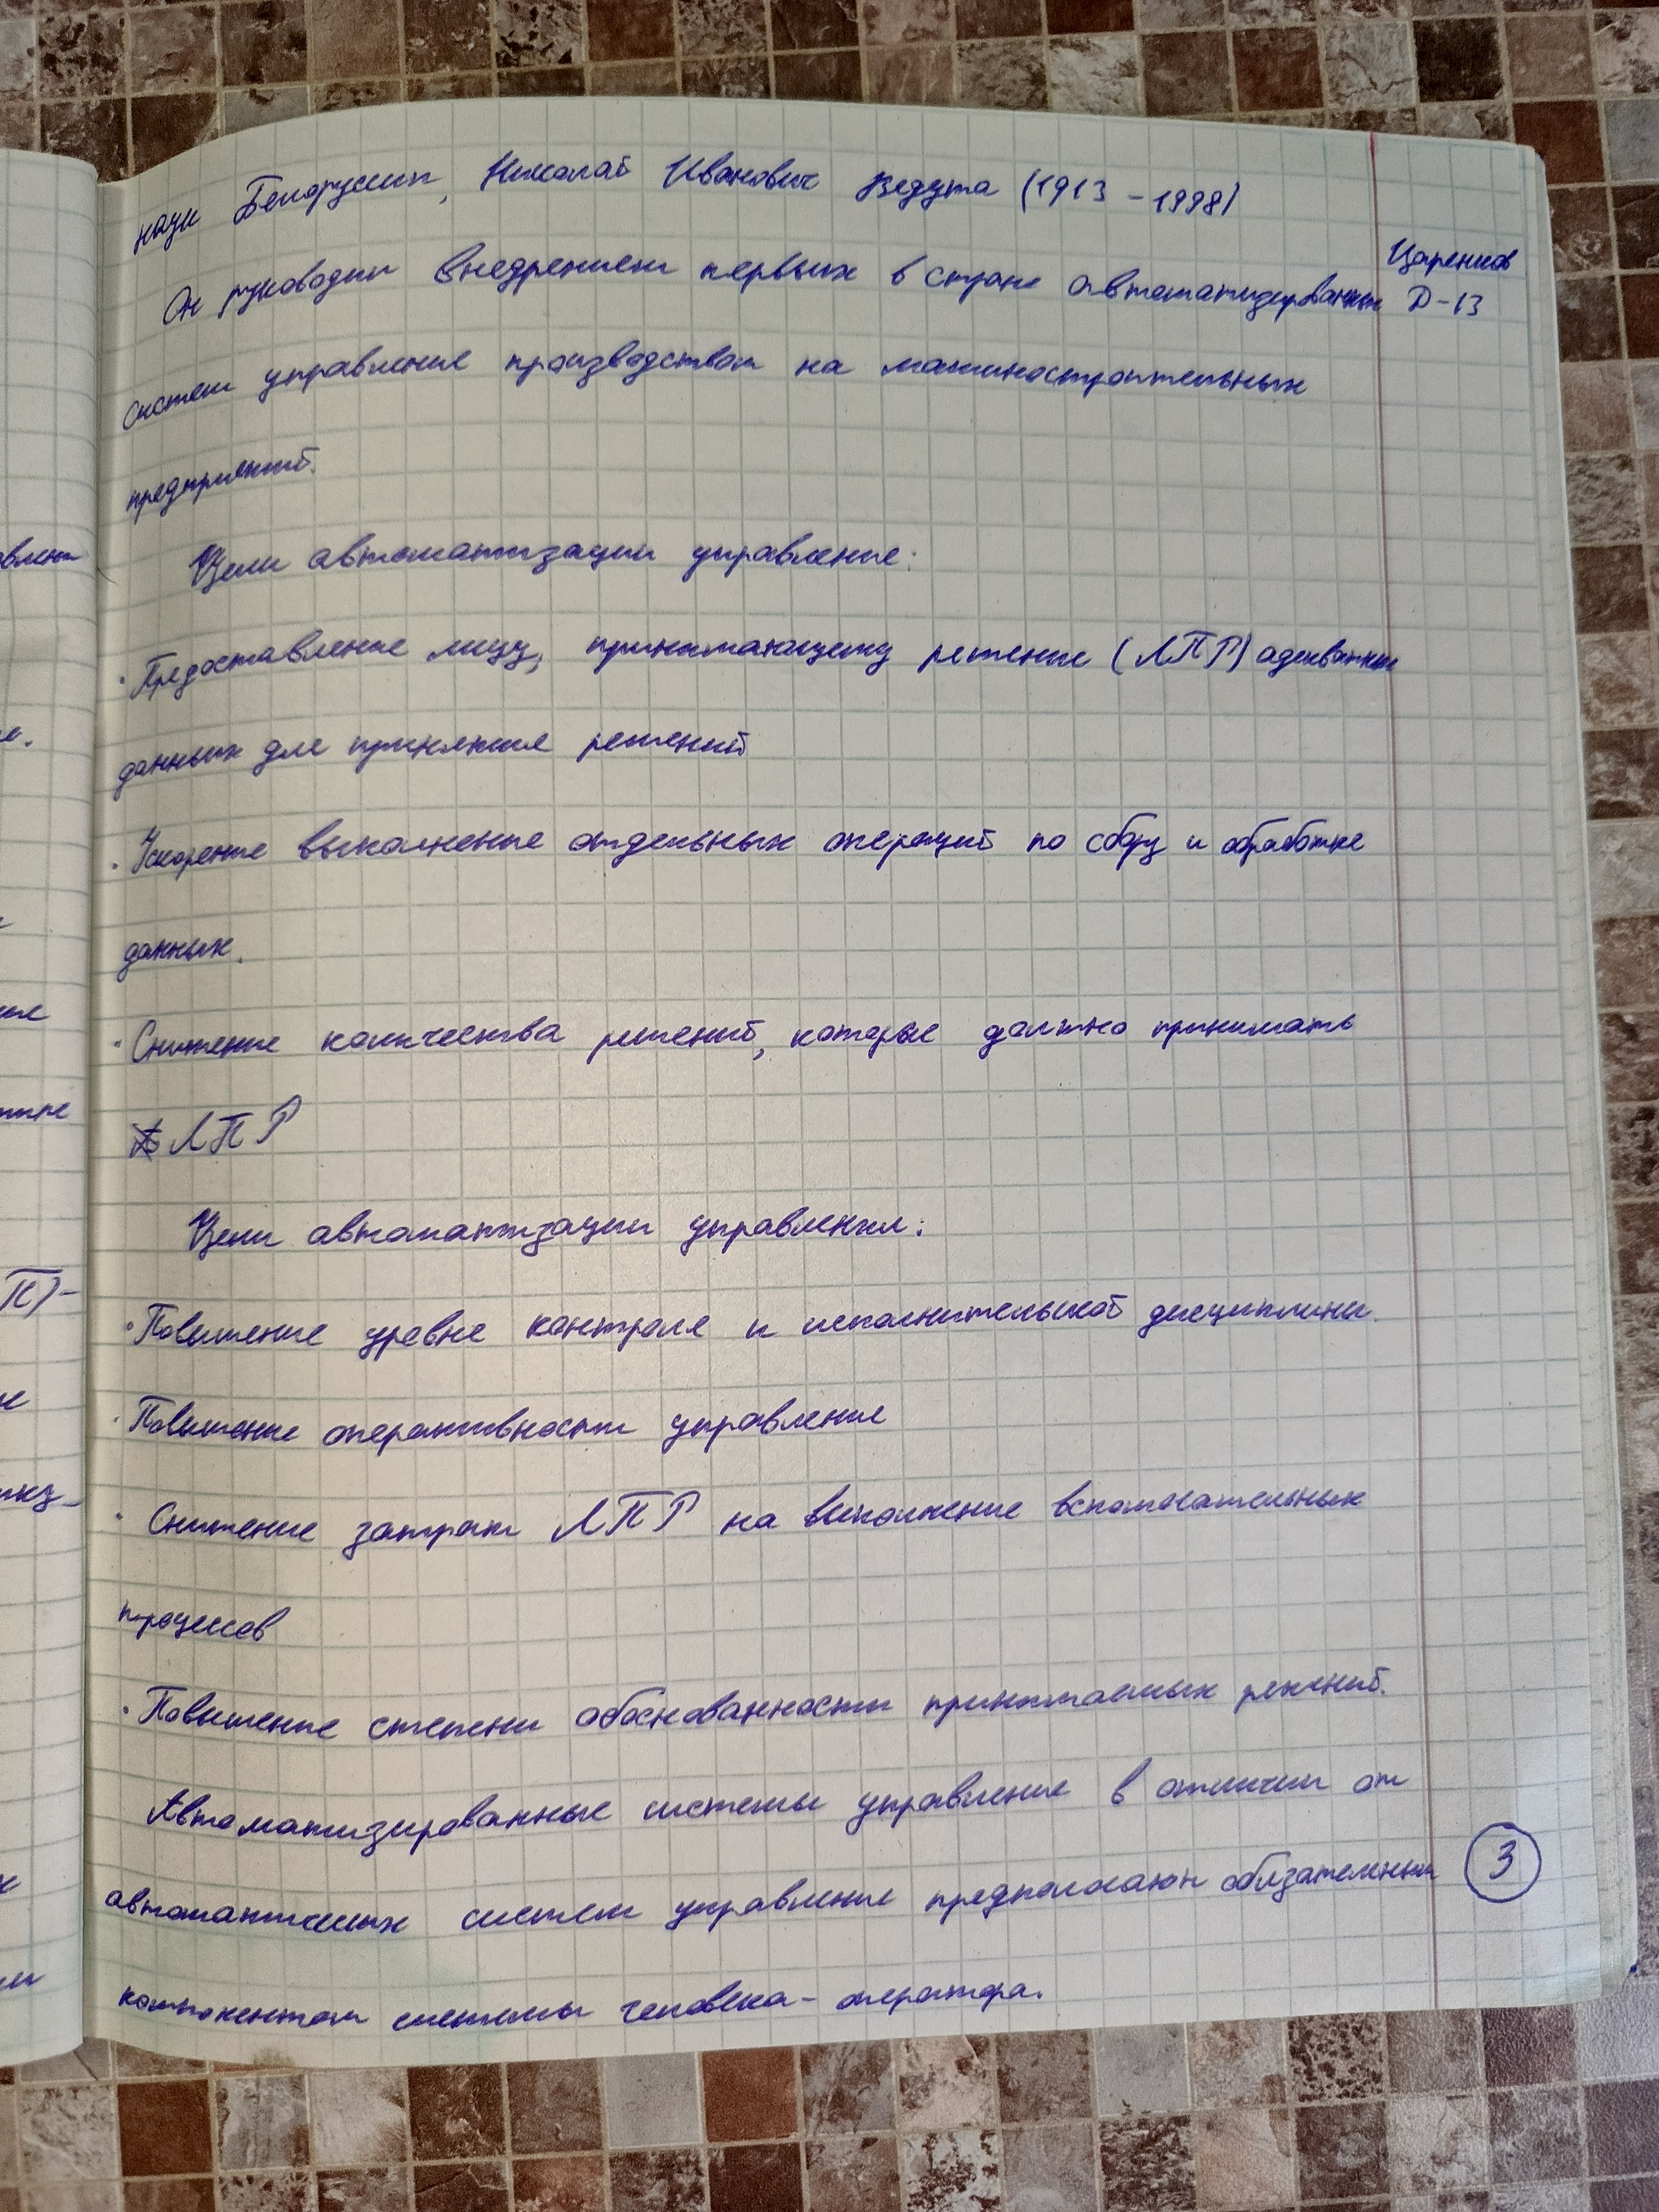 наук Белоруссии, Николай Иванович Ведута (1913 - 1998)
Царенков
Он руководил внедрением первых в стране автоматизированных Д-13
систем управление производством на машиностроительных
предприятий.
Цели автоматизации управление:
· Предоставление лицу, принимающему решение (ЛПР) адекватных
данных для принятие решений
· Ускорение выполнение отдельных операций по сбору и обработке
данных.
· Снижение количества решений, которые должно принимать
ЛПР
Цели автоматизации управления:
· Повышение уровне контроля и исполнительской дисциплины.
· Повышение оперативности управление
· Снижение затрат ЛПР на выполнение вспомогательных
процессов
· Повышение степени обоснованности принимаемых решений.
Автоматизированные системы управление в отличии от
автоматических систем управление предполагают обязательным 3
компонентом системы человека - оператора.